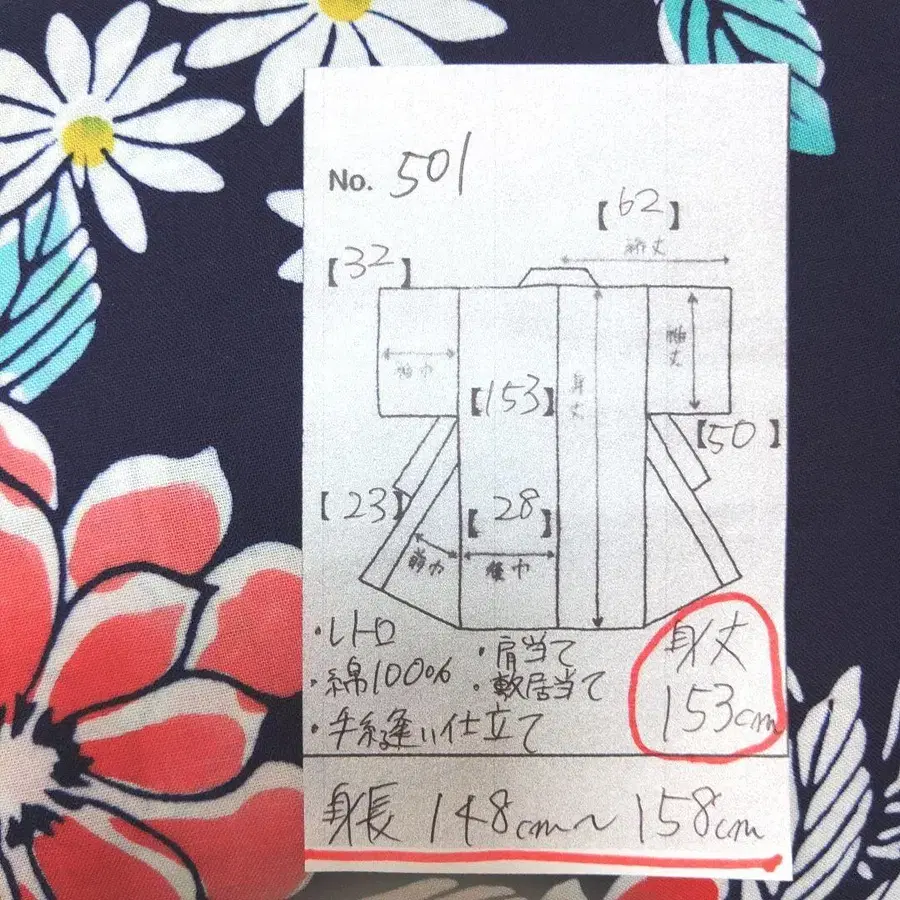 No. 501
【62】
裄丈
【32】
袖巾
袖丈
【153】
身丈
【50】
【23】
【28】
前巾
後巾
・レトロ
・綿100%
・手縫い仕立て
・肩当て
・敷居当て
身丈
153cm
身長 148cm〜158cm